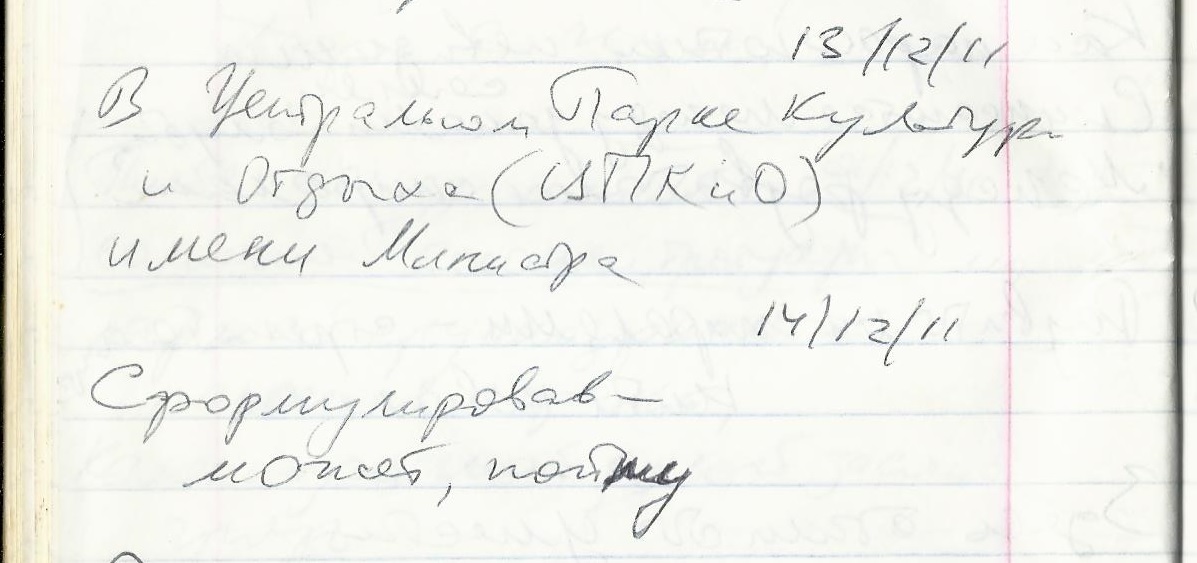 13/12/11
В Центральном Парке Культуры
и Отдыха (ЦПКиО)
имени Министра
14/12/11
Сформулировав –
может, пойму